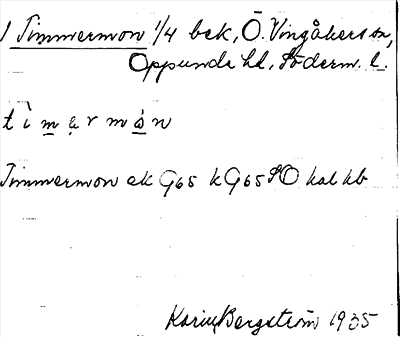 1 Timmermon 1/4 bek, Ö. Vingåkers sn,
Oppunda hd, Söderm. l.
t i m a r m ò n
Timmermon ek G65 k G65 SO kal kb
Karin Bergström 1935